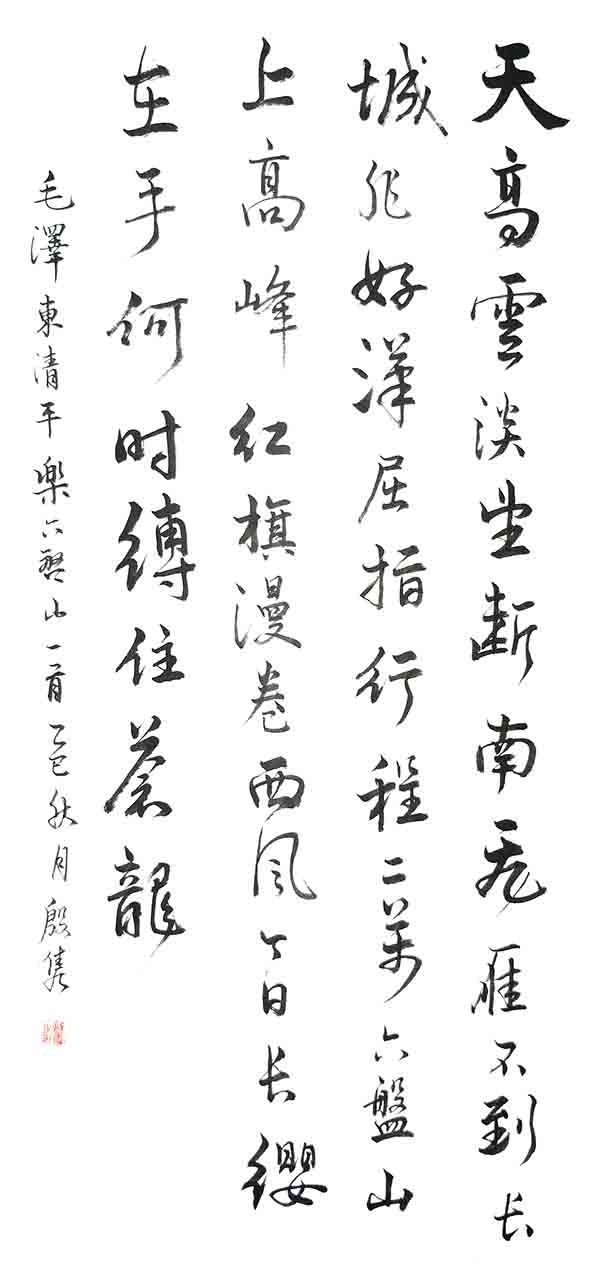 天高雲淡望斷南飛雁不到长
城非好漢屈指行程二萬六盤山
上高峰红旗漫卷西风今日长纓
在手何时縛住蒼龍
毛澤東清平樂六盤山一首乙巳秋月殷雋